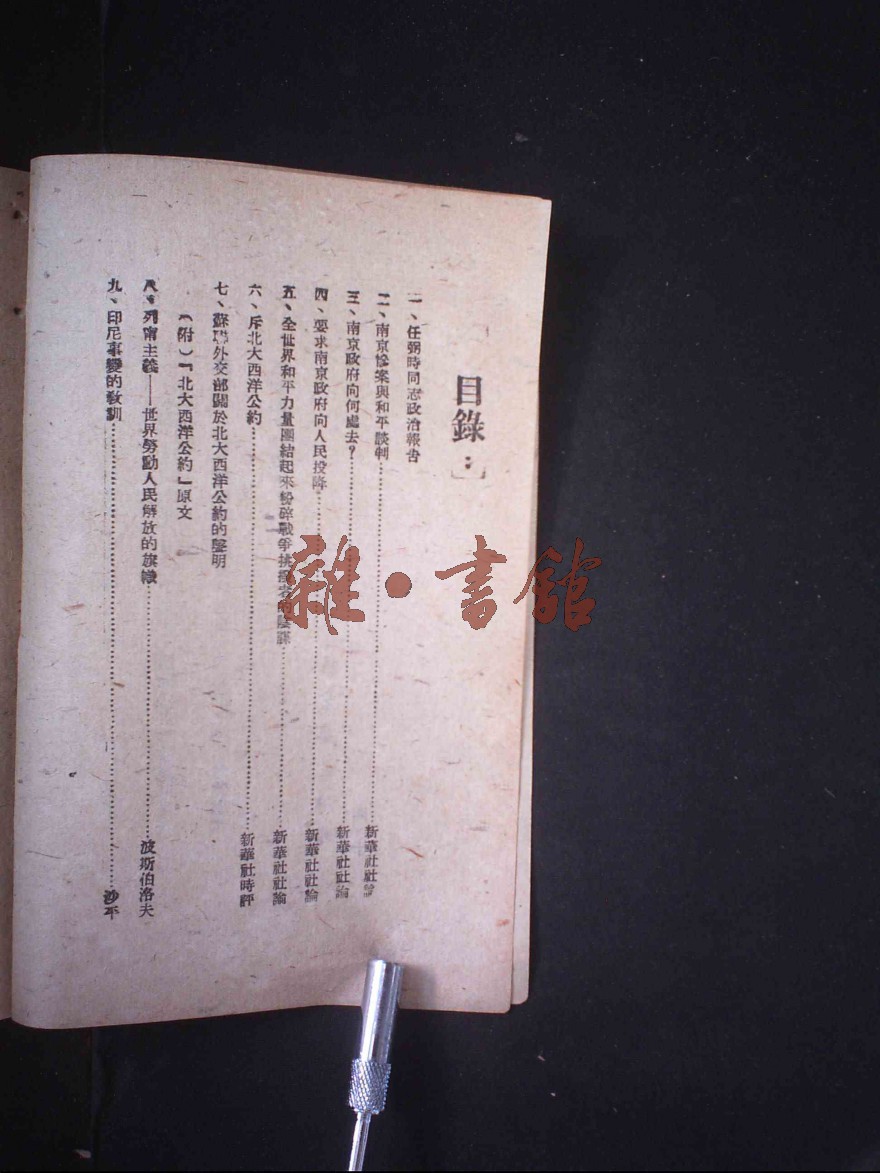 目錄：
一、任弼時同志政治報告
二、南京慘案與和平談判……新華社社論
三、南京政府向何處去？……新華社社論
四、要求南京政府向人民投降……新華社社論
五、全世界和平力量團結起來粉碎戰爭挑撥者的陰謀……新華社社論
六、斥北大西洋公約……新華社時評
七、蘇聯外交部關於北大西洋公約的聲明
（附）「北大西洋公約」原文
八、列甯主義——世界勞動人民解放的旗幟……波斯伯洛夫
九、印尼事變的敎訓……沙平
雜·書館